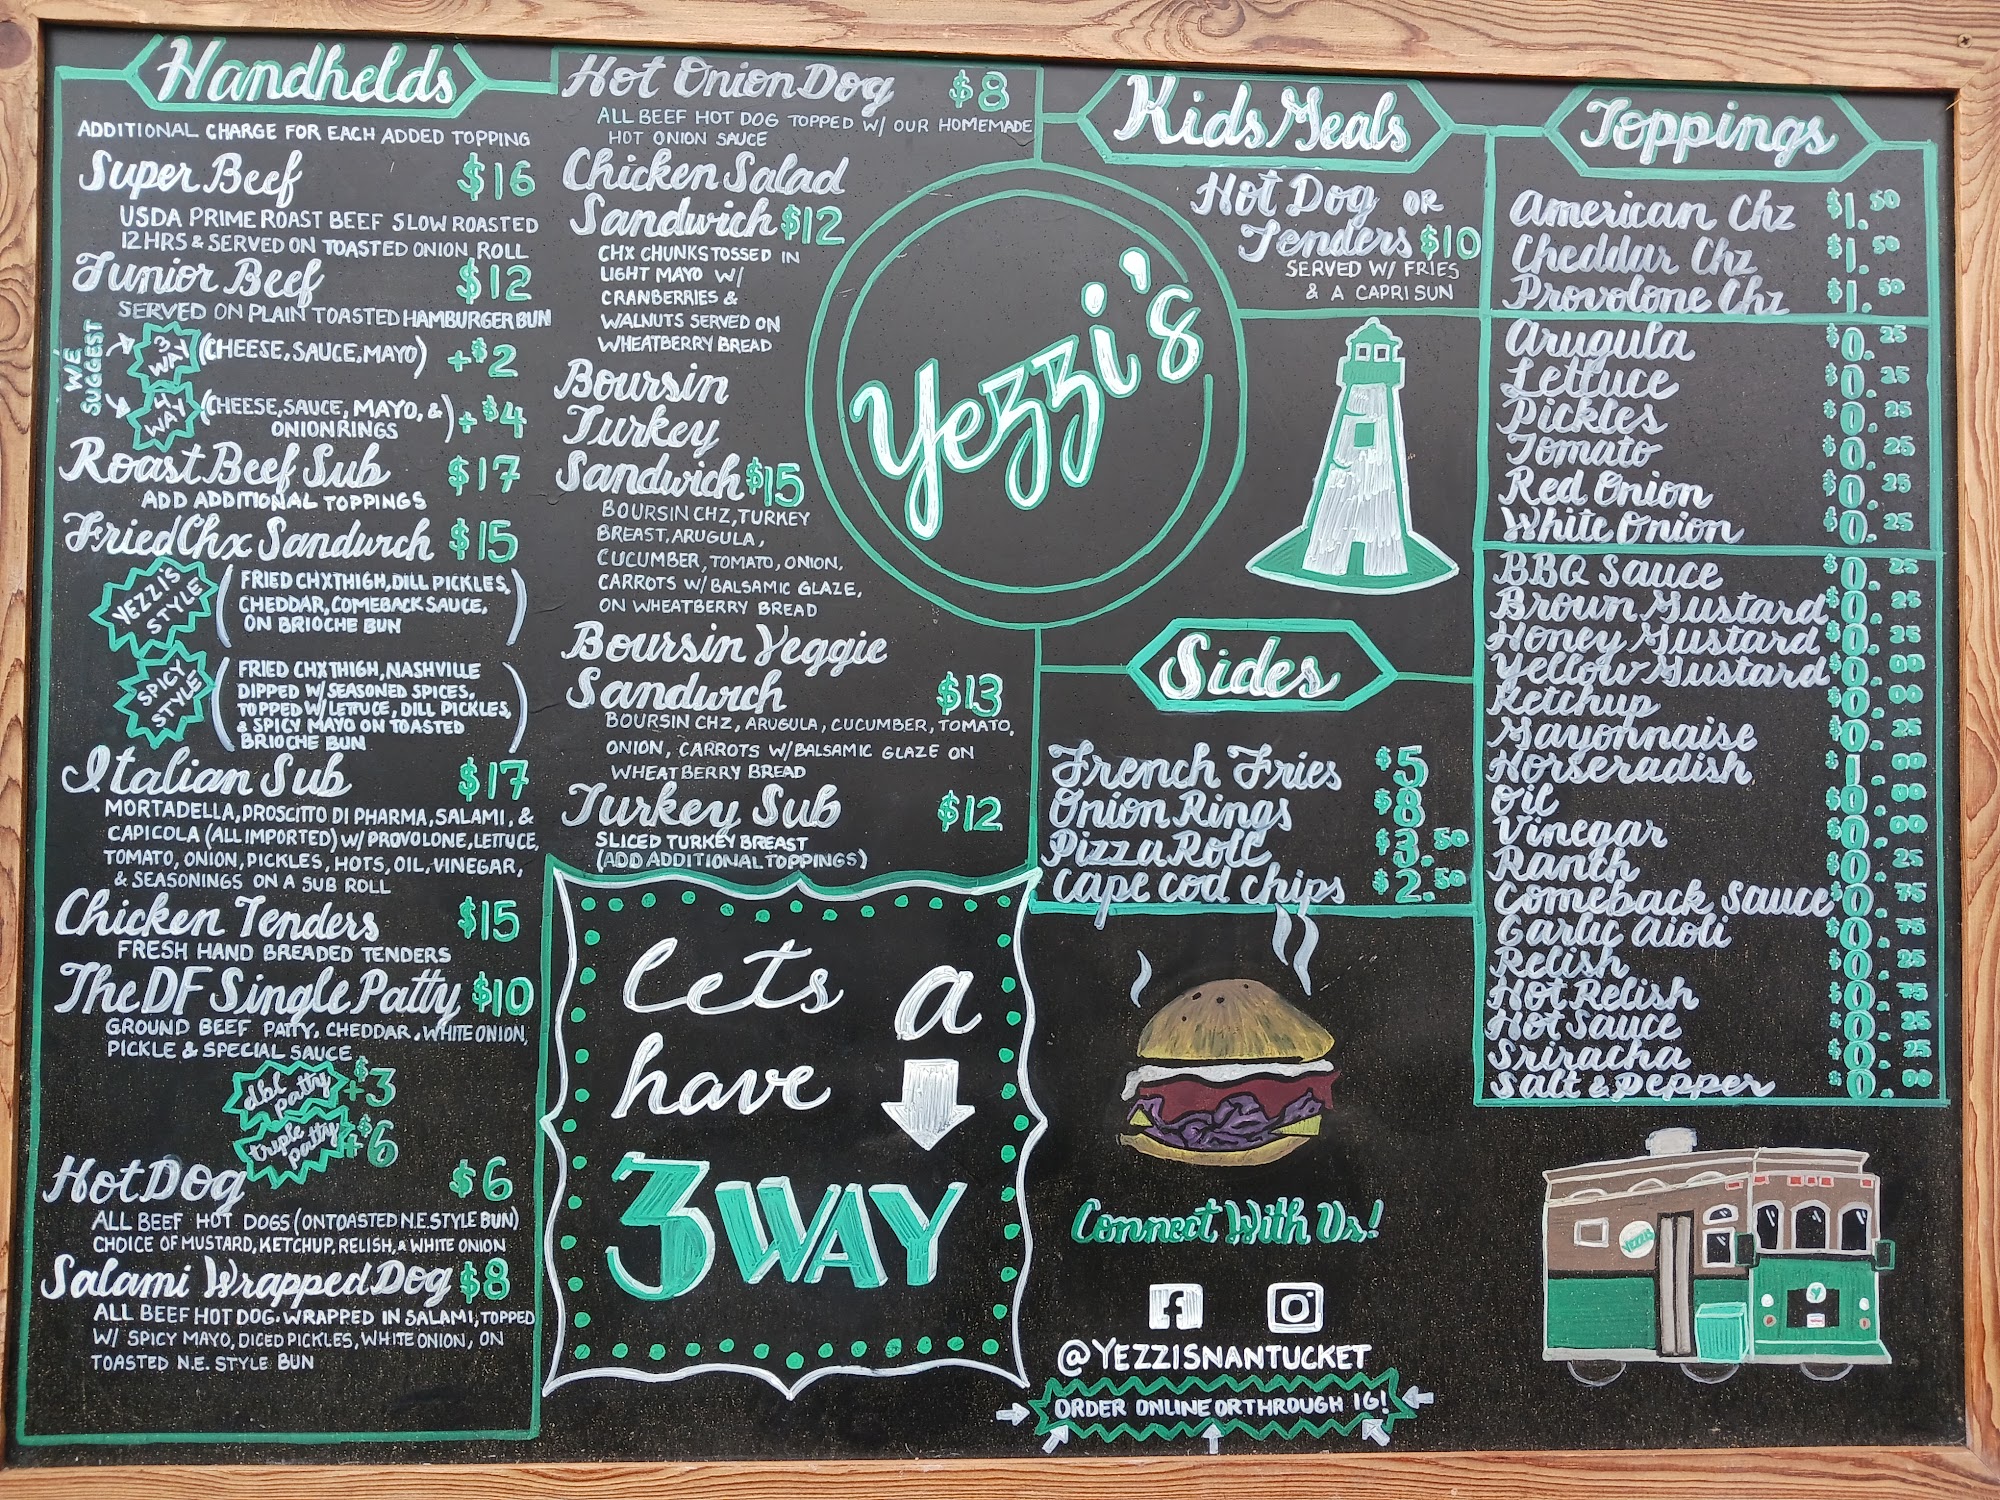 Handhelds
ADDITIONAL CHARGE FOR EACH ADDED TOPPING
Super Beef $16
USDA PRIME ROAST BEEF SLOW ROASTED
12HRS & SERVED ON TOASTED ONION ROLL
Junior Beef $12
SERVED ON PLAIN TOASTED HAMBURGER BUN
WE SUGGEST
3 WAY (CHEESE, SAUCE, MAYO) +$2
4 WAY (CHEESE, SAUCE, MAYO, & ONION RINGS) +$4
Roast Beef Sub $17
ADD ADDITIONAL TOPPINGS
Fried Chx Sandwich $15
YEZZI'S STYLE
(FRIED CHX THIGH, DILL PICKLES,
CHEDDAR, COMEBACK SAUCE,
ON BRIOCHE BUN)
SPICY STYLE
(FRIED CHX THIGH, NASHVILLE
DIPPED W/ SEASONED SPICES,
TOPPED W/ LETTUCE, DILL PICKLES,
& SPICY MAYO ON TOASTED
BRIOCHE BUN)
Italian Sub $17
MORTADELLA, PROSCITTO DI PHARMA, SALAMI, &
CAPICOLA (ALL IMPORTED) W/ PROVOLONE, LETTUCE,
TOMATO, ONION, PICKLES, HOTS, OIL, VINEGAR,
& SEASONINGS ON A SUB ROLL
Chicken Tenders $15
FRESH HAND BREADED TENDERS
The DF Single Patty $10
GROUND BEEF PATTY, CHEDDAR, WHITE ONION,
PICKLE & SPECIAL SAUCE
dbl patty +$3
triple patty +$6
Hot Dog $6
ALL BEEF HOT DOGS (ON TOASTED N.E. STYLE BUN)
CHOICE OF MUSTARD, KETCHUP, RELISH, & WHITE ONION
Salami Wrapped Dog $8
ALL BEEF HOT DOG. WRAPPED IN SALAMI, TOPPED
W/ SPICY MAYO, DICED PICKLES, WHITE ONION, ON
TOASTED N.E. STYLE BUN
Hot Onion Dog $8
ALL BEEF HOT DOG TOPPED W/ OUR HOMEMADE
HOT ONION SAUCE
Chicken Salad
Sandwich $12
CHX CHUNKS TOSSED IN
LIGHT MAYO W/
CRANBERRIES &
WALNUTS SERVED ON
WHEATBERRY BREAD
Boursin
Turkey
Sandwich $15
BOURSIN CHZ, TURKEY
BREAST, ARUGULA,
CUCUMBER, TOMATO, ONION,
CARROTS W/ BALSAMIC GLAZE,
ON WHEATBERRY BREAD
Boursin Veggie
Sandwich $13
BOURSIN CHZ, ARUGULA, CUCUMBER, TOMATO,
ONION, CARROTS W/ BALSAMIC GLAZE ON
WHEATBERRY BREAD
Turkey Sub $12
SLICED TURKEY BREAST
(ADD ADDITIONAL TOPPINGS)
Lets
have
a
3WAY
Yezzi's
Kids Meals
Hot Dog OR
Tenders $10
SERVED W/ FRIES
& A CAPRI SUN
Sides
French Fries $5
Onion Rings $8
Pizza Roll $3.50
Cape Cod Chips $2.50
Connect With Us!
@YEZZISNANTUCKET
ORDER ONLINE OR THROUGH IG!
Toppings
American Chz $1.50
Cheddar Chz $1.50
Provolone Chz $1.50
Arugula $0.25
Lettuce $0.25
Pickles $0.25
Tomato $0.25
Red Onion $0.25
White Onion $0.25
BBQ Sauce $0.25
Brown Mustard $0.25
Honey Mustard $0.25
Yellow Mustard $0.00
Ketchup $0.00
Mayonnaise $0.25
Horseradish $1.00
Oil $0.00
Vinegar $0.00
Ranch $0.25
Comeback Sauce $0.75
Garlic Aioli $0.75
Relish $0.25
Hot Relish $0.75
Hot Sauce $0.25
Sriracha $0.25
Salt & Pepper $0.00
YEZZIS